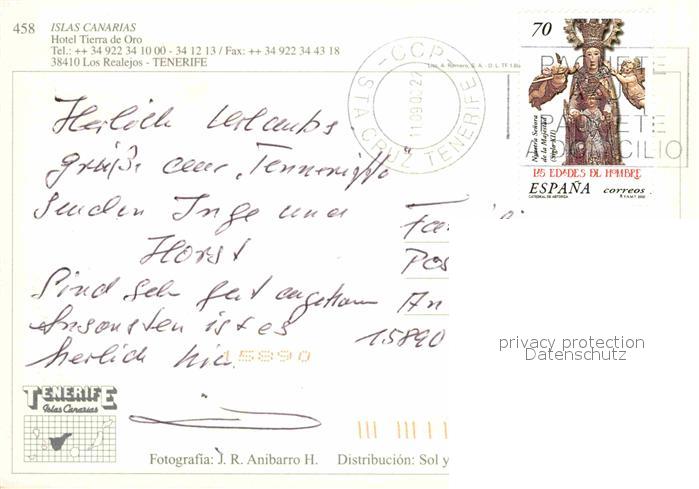 458 ISLAS CANARIAS
Hotel Tierra de Oro
Tel.: ++ 34 922 34 10 00 - 34 12 13 / Fax: ++ 34 922 34 43 18
38410 Los Realejos - TENERIFE
70
Nuestra Señora
de la Majestad
(Siglo XII)
LAS EDADES DEL HOMBRE
ESPAÑA correos
CATEDRAL DE ASTORGA
- CCP -
STA CRUZ TENERIFE
PAQUETE
PAQUETE
A DOMICILIO
Herlich Urlaubs
grüße aus "Tenneriffa"
senden Inge und
Horst
Sind sehr gut angekom
Ansonsten ist es
herlich hier.
Fa
Pos
An
15890
15890
privacy protection
Datenschutz
TENERIFE
Islas Canarias
Fotografía: J. R. Anibarro H. Distribución: Sol y